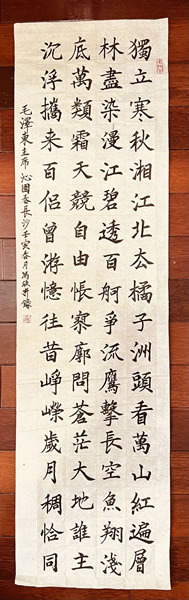 獨立寒秋湘江北去橘子洲頭看萬山紅遍層
林盡染漫江碧透百舸爭流鷹擊長空魚翔淺
底萬類霜天競自由悵寥廓問蒼茫大地誰主
沉浮攜来百侶曾游憶往昔崢嶸歲月稠恰同
毛澤東主席沁園春長沙壬寅春月馮錄